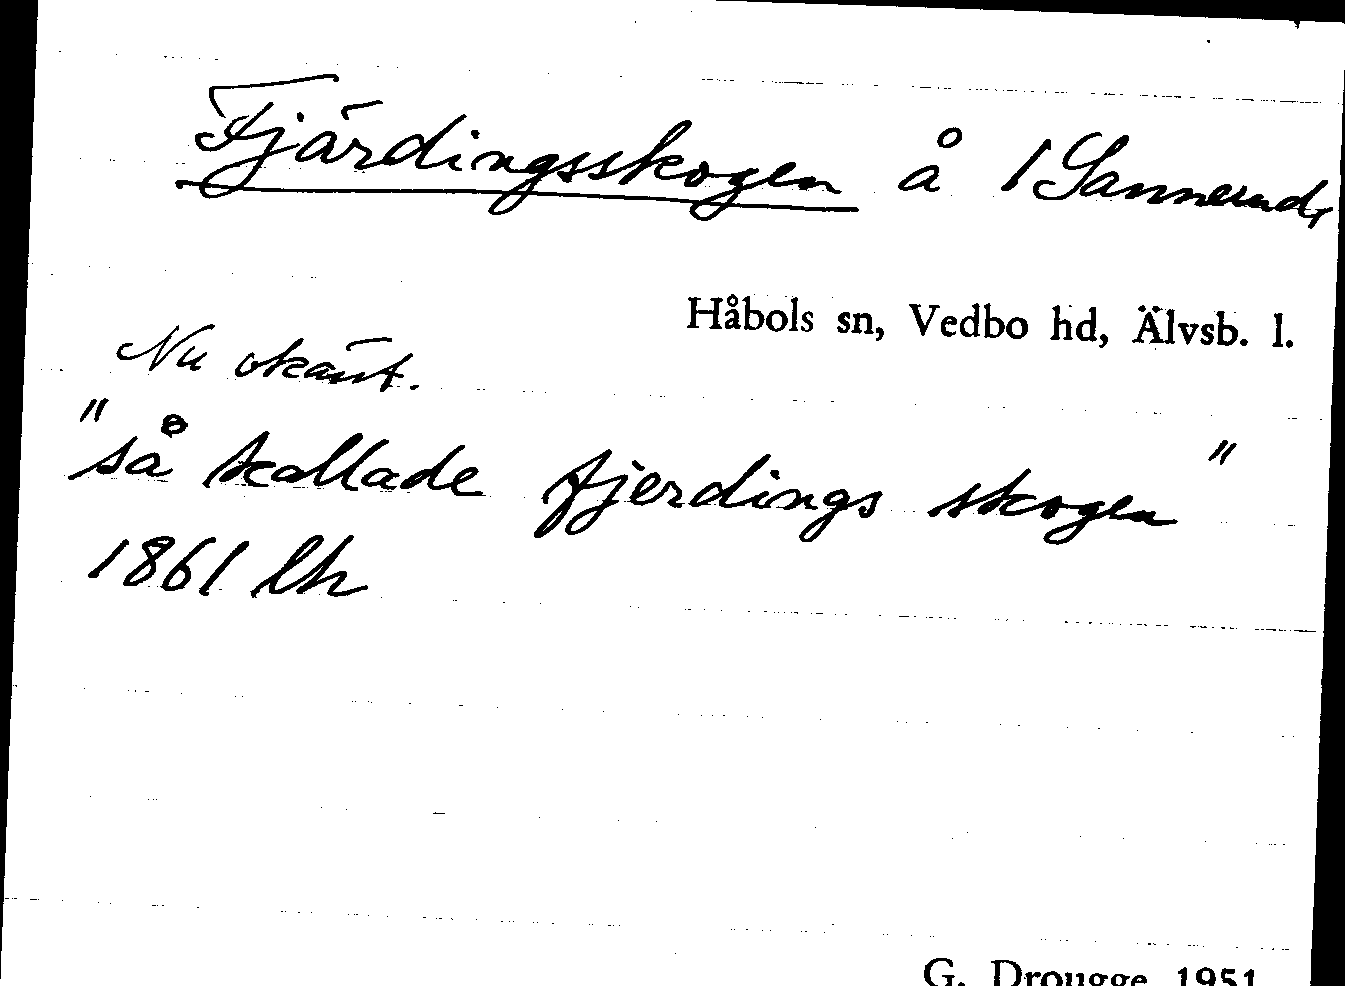 Fjärdingsskogen å 1 Sannerud,
Håbols sn, Vedbo hd, Älvsb. l.
Nu okänt.
"så kallade fjerdings skogen"
1861 lh
G. Drougge 1951